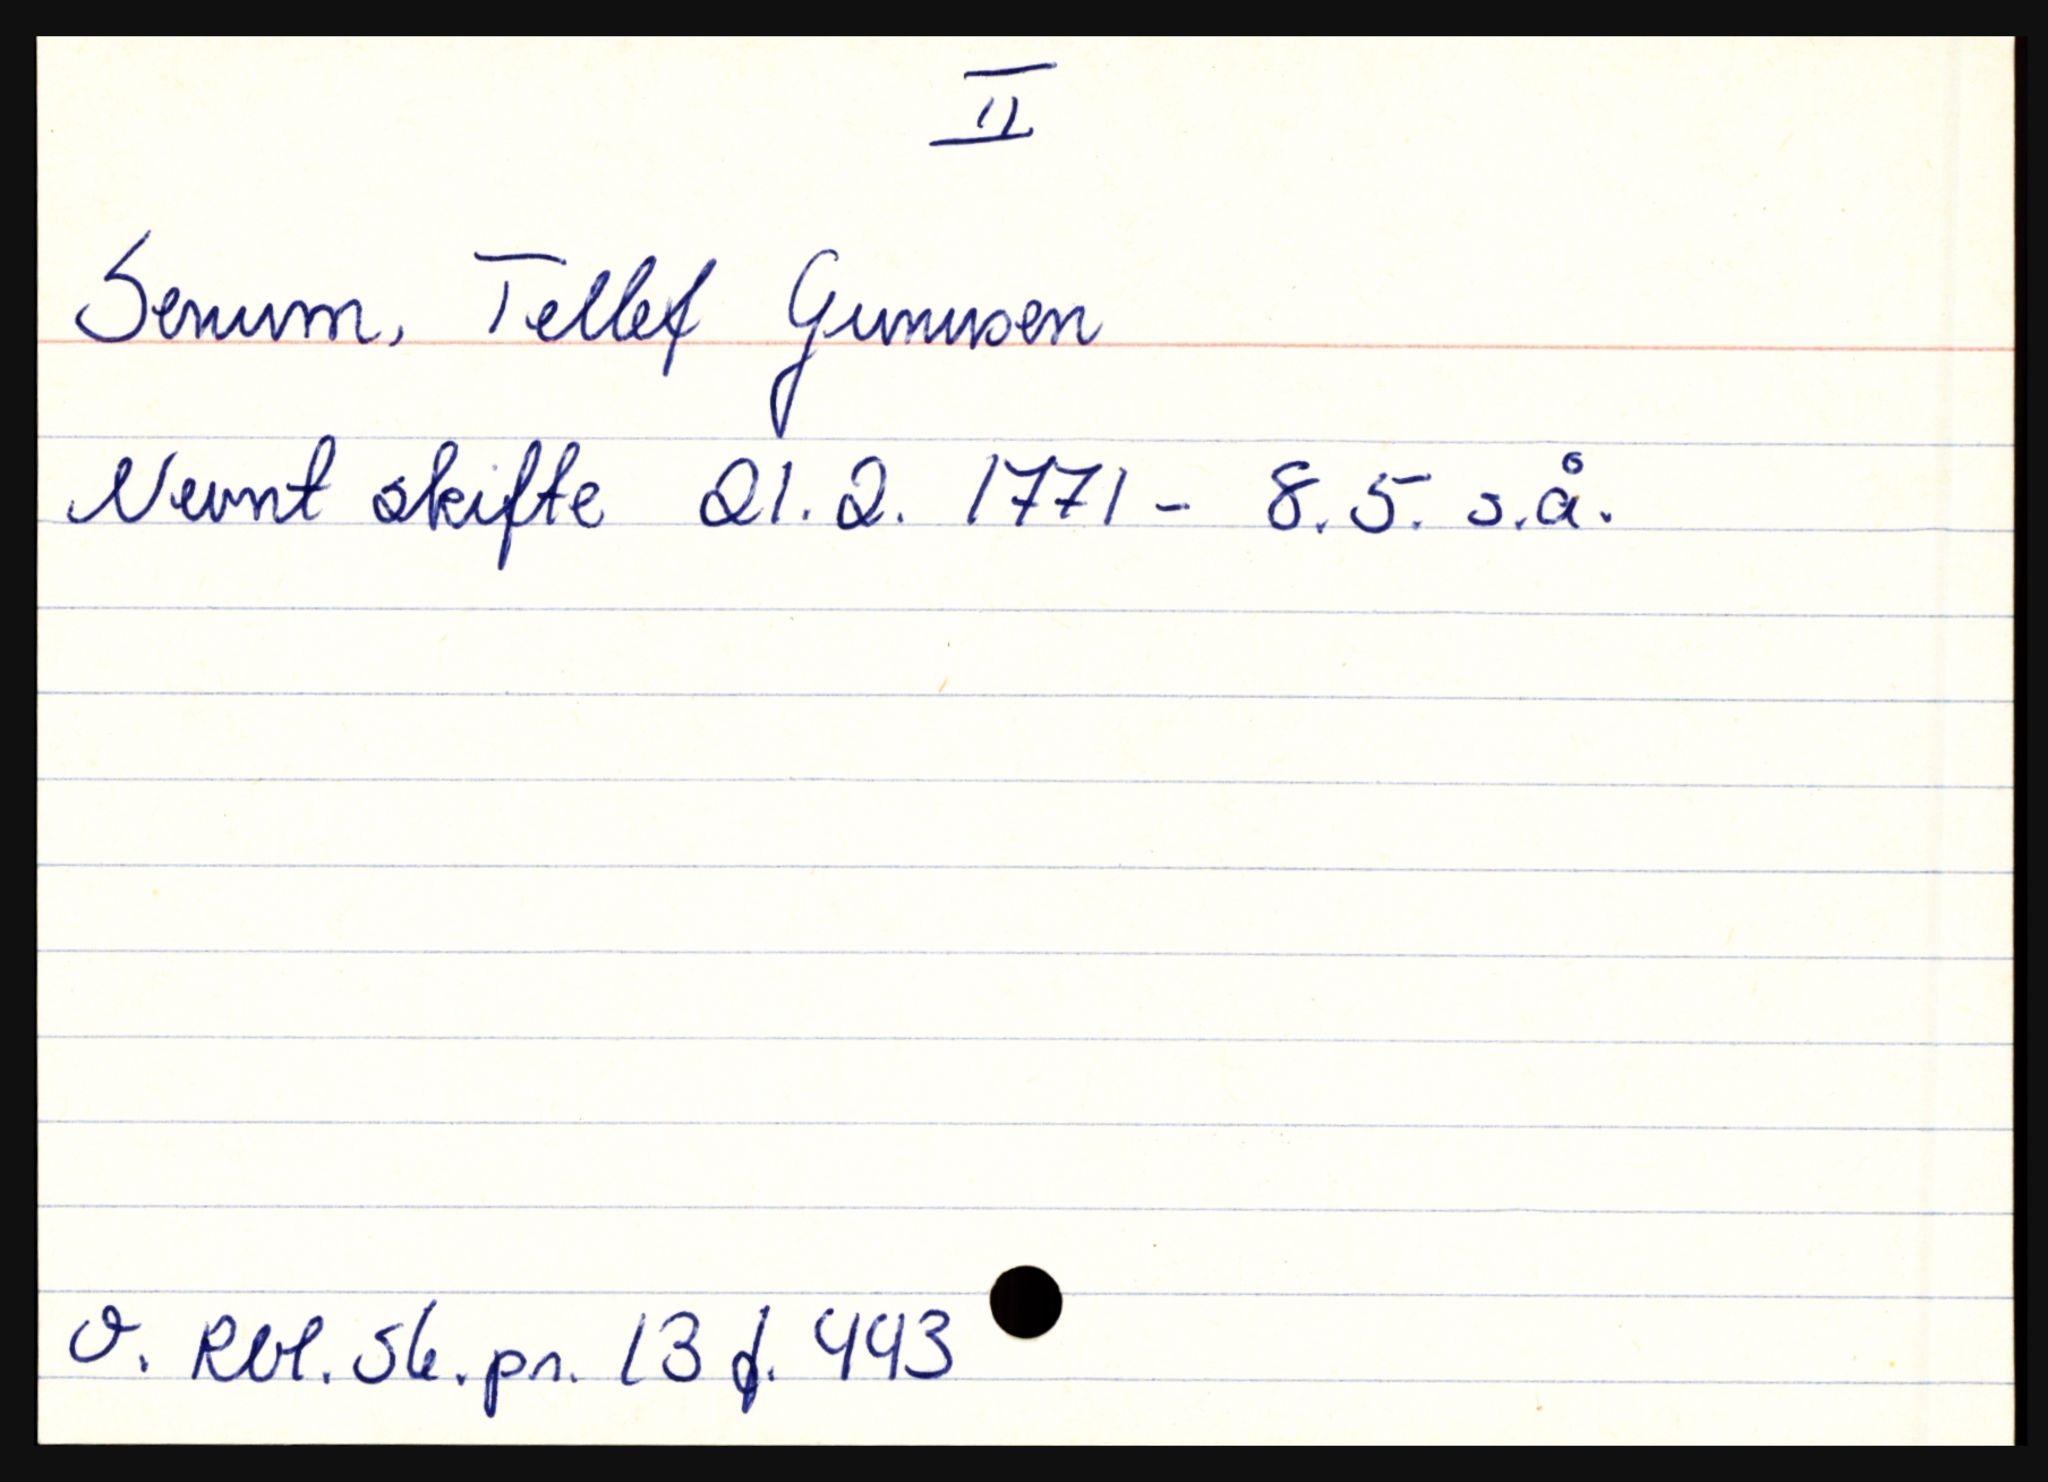 II
Senum, Tellef Gunnusen
Nevnt skifte 21.2. 1771 - 8.5. s.å.
V. Rbl. Sk.pr. 13 f. 443